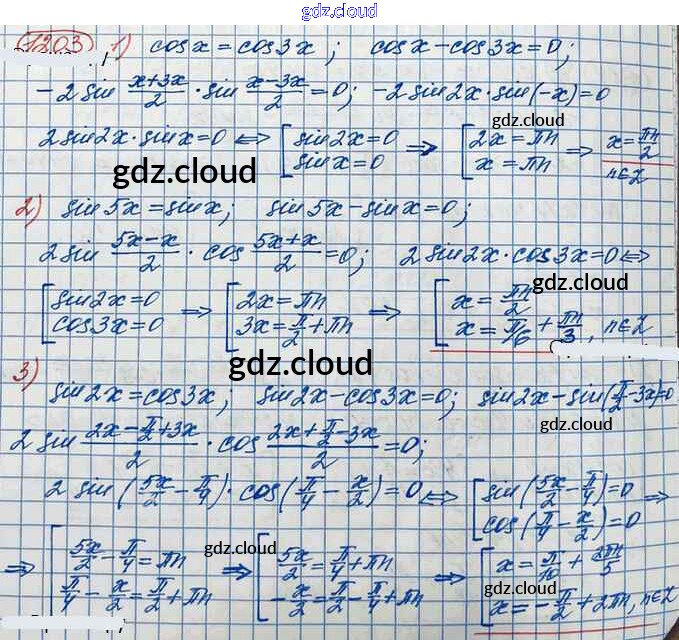 gdz.cloud
1203 1) cosx = cos3x; cosx - cos3x = 0;
-2 sin (x+3x)/2 · sin (x-3x)/2 = 0; -2 sin2x · sin(-x) = 0
2 sin2x · sinx = 0 ⟺ [sin2x = 0; sinx = 0 ⟹ [2x = πn; x = πn ⟹ x = πn/2, n∈Z
gdz.cloud
2) sin5x = sinx; sin5x - sinx = 0;
2 sin (5x-x)/2 · cos (5x+x)/2 = 0; 2 sin2x · cos3x = 0 ⟺
gdz.cloud
[sin2x = 0; cos3x = 0 ⟹ [2x = πn; 3x = π/2 + πn ⟹ [x = πn/2; x = π/6 + πn/3, n∈Z
gdz.cloud
3) sin2x = cos3x; sin2x - cos3x = 0; sin2x - sin(π/2 - 3x) = 0
2 sin (2x - π/2 + 3x)/2 · cos (2x + π/2 - 3x)/2 = 0;
gdz.cloud
2 sin(5x/2 - π/4) · cos(π/4 - x/2) = 0 ⟺ [sin(5x/2 - π/4) = 0; cos(π/4 - x/2) = 0 ⟹
gdz.cloud
⟹ [5x/2 - π/4 = πn; π/4 - x/2 = π/2 + πn ⟹ [5x/2 = π/4 + πn; -x/2 = π/2 - π/4 + πn ⟹ [x = π/10 + 2πn/5; x = -π/2 + 2πn, n∈Z
gdz.cloud
gdz.cloud